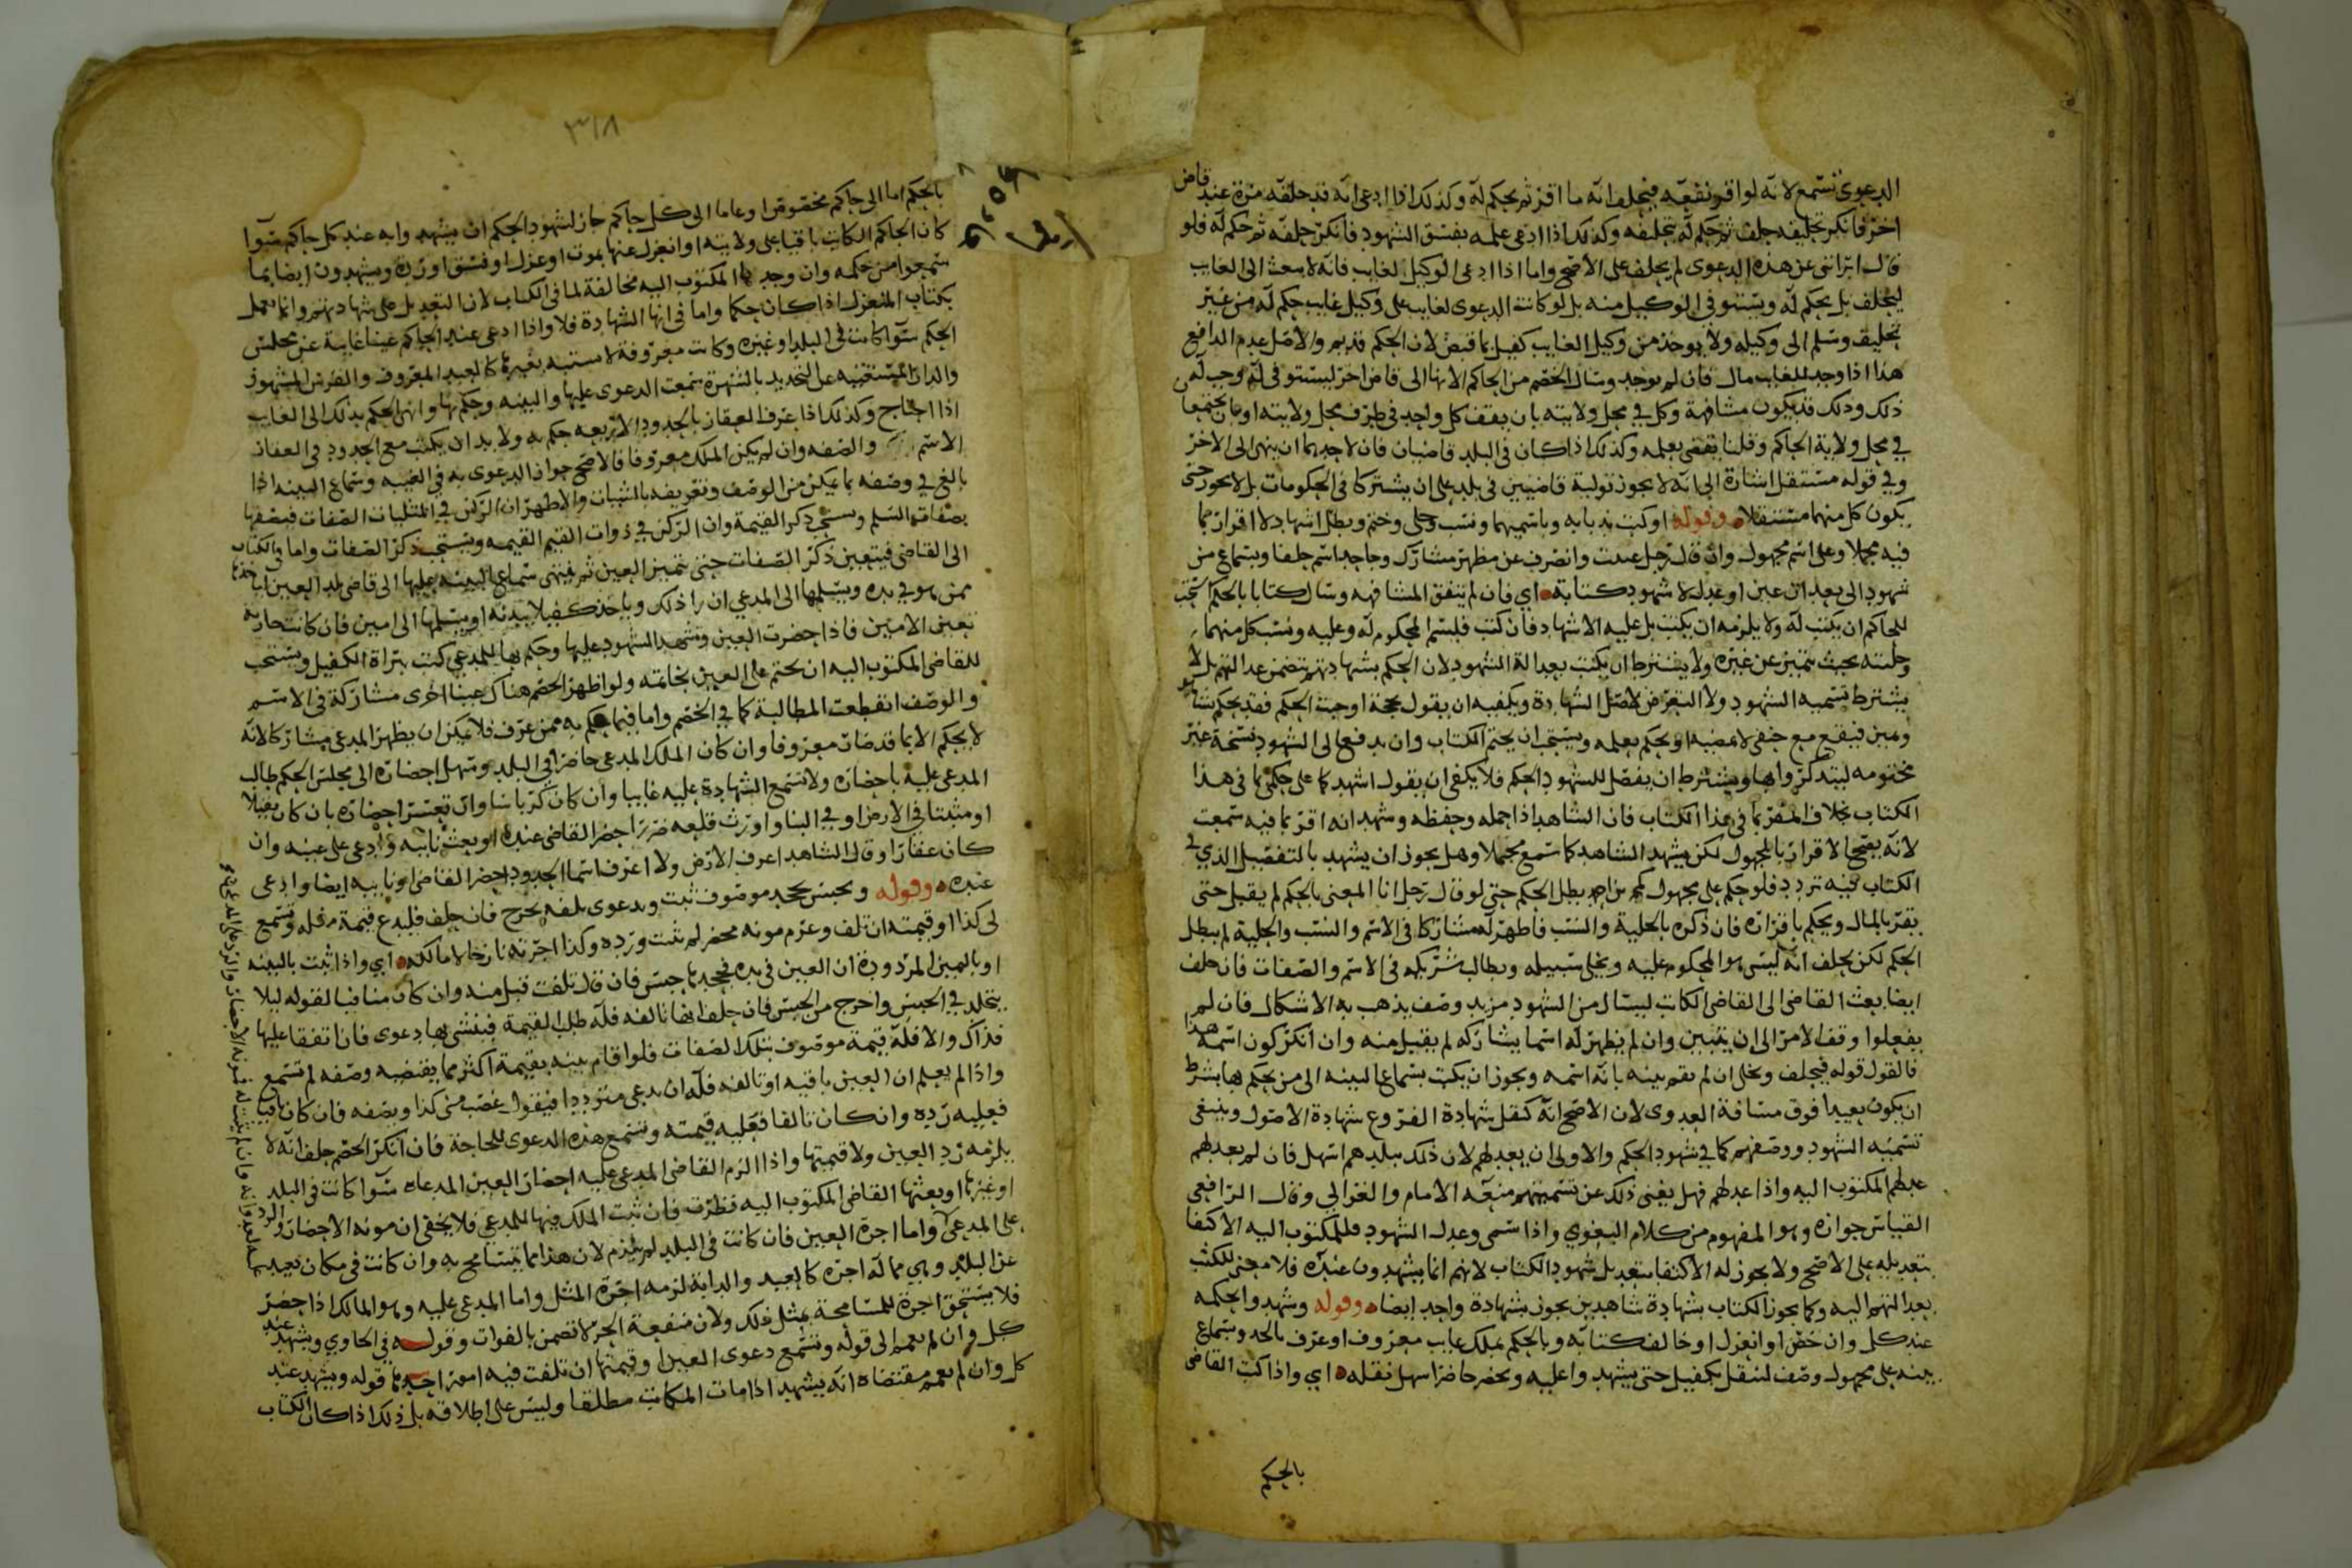 الدعوى تسمع لانه لو اقر نفعه فيحلف انه ما اقر ثم يحكم له وكذلك اذا ادعى انه قد حلفه مرة عند قاض
اخر فانكر تحليفه حلف ثم حكم له بتحليفه وكذلك اذا ادعى علمه بفسق الشهود فانكر حلفه ثم حكم له فلو
قال ابراني عن هذه الدعوى لم يحلف على الاصح واما اذا ادعى الوكيل لغايب فانه لا يبعث الى الغايب
ليحلف بل يحكم له ويستوفي الوكيل منه بل لو كانت الدعوى لغايب على وكيل غايب حكم له من غير
تحليف وسلم الى وكيله ولا يوخذ من وكيل الغايب كفيل بما قبض لان الحكم قد تم والاصل عدم الدافع
هذا اذا وجد للغايب مال فان لم يوجد وسال الخصم من الحاكم الانها الى قاض اخر ليستوفي له وجب له
ذلك وذلك قد يكون مشافهة وكل في محل ولايته بان يقف كل واحد في طرف محل ولايته او بان يجتمعا
في محل ولاية الحاكم وقلنا يقضي بعلمه وكذلك اذا كان في البلد قاضيان فان لاحدهما ان ينهي الى الاخر
وفي قوله مستقل اشارة الى انه لا يجوز تولية قاضيين في بلد على ان يشتركا في الحكومات بل لا يجوز حتى
يكون كل منهما مستقلا وقوله او كتب ندبا به وباسميهما ونسب وحلى وختم وبطل اشهاد لا اقرار بما
فيه مجملا وعلى اسم مجهول وان قال رجل عنيت وانصرف عن مظهر مشارك وجاحد اسم حلفا وبسماع من
شهود الى بعد ان عين او عدل لا شهود كتابه اي فان لم تتفق المشافهه وسال كتابا بالحكم استحب
للحاكم ان يكتب له ولا يلزمه ان يكتب بل عليه الاشهاد فان كتب فليسم المحكوم له وعليه ونسب كل منهما
وحليته بحيث يتميز عن غيره ولا يشترط ان يكتب بعدالة الشهود لان الحكم بشهادتهم يتضمن عدالتهم بل لا
يشترط تسميه الشهود ولا التعرض لاصل الشهادة ويكفيه ان يقول بحجة اوجبت الحكم فقد يحكم بشاهد
ويمين فيقع مع حنفي لا يمضيه او يحكم بعلمه ويستحب ان يختم الكتاب وان يدفع الى الشهود نسخة غير
مختومه ليتذكروا بها ويشترط ان يفصل للشهود الحكم فلا يكفي ان يقول اشهدكما على حكمي بما في هذا
الكتاب بخلاف المقر بما في هذا الكتاب فان الشاهد اذا حمله وحفظه وشهد انه اقر بما فيه سمعت
لانه يصح الاقرار بالمجهول لكن يشهد الشاهد كما سمع مجملا وهل يجوز ان يشهد بالتفصيل الذي في
الكتاب فيه تردد فلو حكم على مجهول كمحمد بن احمد بطل الحكم حتى لو قال رجل انا المعني بالحكم لم يقبل حتى
يقر بالمال ويحكم باقراره فان ذكره بالحلية والنسب فاظهر له مشاركا في الاسم والنسب والحلية لم يبطل
الحكم لكن يحلف انه ليس هو المحكوم عليه ويخلى سبيله ويطالب شريكه في الاسم والصفات فان حلف
ايضا بعث القاضي الى القاضي الكاتب ليسال من الشهود مزيد وصف يذهب به الاشكال فان لم
يفعلوا وقف الامر الى ان يتبين وان لم يظهر له اسما يشاركه لم يقبل منه وان انكر كون اسمه هذا
فالقول قوله فيحلف ويخلى ان لم يقم بينه بانه اسمه ويجوز ان يكتب بسماع البينه الى من يحكم بها بشرط
ان يكون بعيدا فوق مسافة العدوى لان الاصح انه كنقل شهادة الفروع شهادة الاصول وينبغي
تسميه الشهود ووصفهم كما في شهود الحكم والاولى ان يعدلهم لان ذلك ببلدهم اسهل فان لم يعدلهم
عدلهم المكتوب اليه واذا عدلهم فهل يغني ذلك عن تسميتهم منعه الامام والغزالي وقال الرافعي
القياس جوازه وهو المفهوم من كلام البغوي واذا سمى وعدل الشهود فللمكتوب اليه الاكتفا
بتعديله على الاصح ولا يجوز له الاكتفا بتعديل شهود الكتاب لانهم انما يشهدون عنده فلا معنى للكتب
بعدالتهم اليه وكما يجوز الكتاب بشهادة شاهدين يجوز بشهادة واحد ايضا وقوله وشهدوا بحكمه
عند كل وان خص او انعزل او خالف كتابه وبالحكم بملك غايب معروف او عرف بالحد وبسماع
بينه على مجهول وصف لنقل بكفيل حتى يشهدوا عليه ويحضر حاضرا سهل نقله اي واذا كتب القاضي
بالحكم
٣١٨
بالحكم اما الى حاكم مخصوص او عاما الى كل حاكم جاز لشهود الحكم ان يشهدوا به عند كل حاكم سوا
كان الحاكم الكاتب باقيا على ولايته او انعزل عنها بموت او عزل او فسق او ردة ويشهدون ايضا بما
سمعوا من حكمه وان وجد المكتوب اليه مخالفة لما في الكتاب لان التعديل على شهادتهم وانما يعمل
بكتاب المنعزل اذا كان حكما واما في انها الشهادة فلا واذا ادعى عند الحاكم عينا غايبة عن مجلس
الحكم سوا كانت في البلد او غيره وكانت معروفة لا تشتبه بغيرها كالعبد المعروف والفرس المشهور
والدار المستغنيه عن التحديد بالشهرة سمعت الدعوى عليها والبينه وحكم بها وانهى الحكم بذلك الى الغايب
اذا احتاج وكذلك اذا عرف العقار بالحدود الاربعه حكم به ولا بد ان يكتب مع الحدود في العقار
الاسم والصفه وان لم يكن الملك معروفا فالاصح جواز الدعوى به في الغيبه وسماع البينه اذا
بالغ في وصفه بما يمكن من الوصف وتعريفه بالشيات والاظهر ان الركن في المثليات الصفات فيصفها
بصفات السلم ويستحب ذكر القيمة وان الركن في ذوات القيم القيمه ويستحب ذكر الصفات واما في الكتاب
الى القاضي فيتعين ذكر الصفات حتى تتميز العين ثم ينهي سماع البينه عليها الى قاضي بلد العين لياخذها
ممن هو في يده ويسلمها الى المدعي ان راى ذلك وياخذ كفيلا ببدنه او يسلمها الى امين فان كانت جارية
تعين الامين فاذا حضرت العين وشهد الشهود عليها وحكم بها للمدعي كتب ببراة الكفيل ويستحب
للقاضي المكتوب اليه ان يختم على العين بخاتمه ولو اظهر الخصم هناك عينا اخرى مشاركة في الاسم
والوصف انقطعت المطالبة كما في الخصم واما فيما حكم به ممن عرف فلا يمكن ان يظهر المدعى مشاركا لانه
لا يحكم الا بما قد صار معروفا وان كان الملك المدعى حاضرا في البلد وسهل احضاره الى مجلس الحكم طالب
المدعى عليه باحضاره ولا تسمع الشهادة عليه غايبا وان كان كرباسا وان تعسر احضاره بان كان ثقيلا
او مثبتا في الارض او في البنا واورث قلعه ضررا حضر القاضي عنده او بعث نايبه وادعى على عينه وان
كان عقارا وقال الشاهد اعرف الارض ولا اعرف اسما الحدود احضر القاضي او نايبه ايضا وادعى
عنده وقوله ويحبس بجحد موصوف ثبت وبدعوى تلفه يخرج فان حلف فليدع قيمة مثله وتسمع
لي كذا او قيمته ان تلف وغرم مونه محضر لم تثبت ورده وكذا اجرته نازحا لا مالكه اي واذا ثبت بالبينه
او باليمين المردودة ان العين في يده فجحدها حبس فان قال تلفت قبل منه وان كان منافيا لقوله ليلا
يتخلد في الحبس واخرج من الحبس فان حلف انها تالفه فله طلب القيمة فينشي بها دعوى فان اتفقا عليها
فذاك والا فله قيمة موصوف بتلك الصفات فلو اقام بينه بقيمة اكثر مما يقتضيه وصفه لم تسمع
واذا لم يعلم ان العين باقيه او تالفه فله ان يدعي مترددا فيقول غصب مني كذا ويصفه فان كان باقيا
فعليه رده وان كان تالفا فعليه قيمته وتسمع هذه الدعوى للحاجة فان انكر الخصم حلف انه لا
يلزمه رد العين ولا قيمتها واذا الزم القاضي المدعى عليه احضار العين المدعاه سوا كانت في البلد
او غيرها او بعثها القاضي المكتوب اليه نظرت فان ثبت الملك فيها للمدعي فلا يخفى ان مونه الاحضار والرد
على المدعى واما اجرة العين فان كانت في البلد لم يلزم لان هذا مما يتسامح به وان كانت في مكان بعيد
عن البلد وهي مما له اجرة كالعبد والدابة لزمه اجرة المثل واما المدعى عليه وهو المالك اذا حضر
فلا يستحق اجرة للمسامحة بمثل ذلك ولان منفعة الحر لا تضمن بالفوات وقوله في الحاوي ويشهد عند
كل وان لم يعمم الى قوله وتسمع دعوى العين او قيمتها ان تلفت فيه امور احدها قوله ويشهد عند
كل وان لم يعمم مقتضاه انه يشهد اذا مات الكاتب مطلقا وليس على اطلاقه بل ذلك اذا كان الكتاب